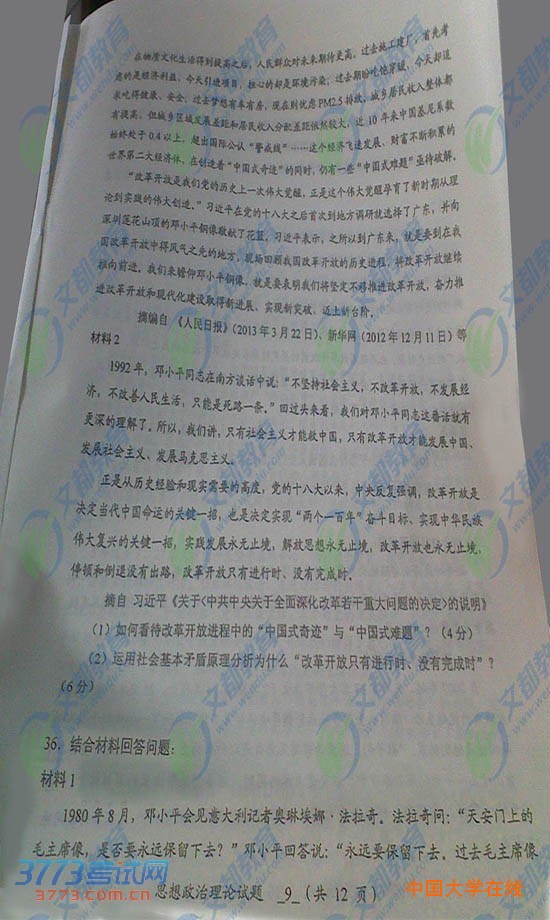 在物质文化生活得到提高之后，人民群众对未来期待更高。过去施工建厂，首先考
虑的是经济利益，今天引进项目，担心的都是环境污染；过去期盼吃饱穿暖，今天却追
求吃得健康、安全；过去梦想有车有房，现在则忧虑PM2.5排放，城乡居民收入整体都
有提高，但城乡区域发展差距和居民收入分配差距依然较大，近10年来中国基尼系数
始终处于0.4以上，超出国际公认“警戒线”……这个经济飞速发展、财富不断积累的
世界第二大经济体，在创造着“中国式奇迹”的同时，仍有一些“中国式难题”亟待破解。
“改革开放是我们党的历史上一次伟大觉醒，正是这个伟大觉醒孕育了新时期从理
论到实践的伟大创造。”习近平在党的十八大之后首次到地方调研就选择了广东，并向
深圳莲花山顶的邓小平铜像敬献了花篮。习近平表示，之所以到广东来，就是要到在我
国改革开放中得风气之先的地方，现场回顾我国改革开放的历史进程，将改革开放继续
推向前进。我们来瞻仰邓小平铜像，就是要表明我们将坚定不移推进改革开放，奋力推
进改革开放和现代化建设取得新进展、实现新突破、迈上新台阶。
摘编自 《人民日报》（2013年3月22日）、新华网（2012年12月11日）等
材料2
1992年，邓小平同志在南方谈话中说：“不坚持社会主义，不改革开放，不发展经
济，不改善人民生活，只能是死路一条。”回过头来看，我们对邓小平同志这番话就有
更深的理解了。所以，我们讲，只有社会主义才能救中国，只有改革开放才能发展中国、
发展社会主义、发展马克思主义。
正是从历史经验和现实需要的高度，党的十八大以来，中央反复强调，改革开放是
决定当代中国命运的关键一招，也是决定实现“两个一百年”奋斗目标、实现中华民族
伟大复兴的关键一招，实践发展永无止境，解放思想永无止境，改革开放也永无止境，
停顿和倒退没有出路，改革开放只有进行时、没有完成时。
摘自 习近平《关于〈中共中央关于全面深化改革若干重大问题的决定〉的说明》
（1）如何看待改革开放进程中的“中国式奇迹”与“中国式难题”？（4分）
（2）运用社会基本矛盾原理分析为什么“改革开放只有进行时、没有完成时”？
（6分）
36．结合材料回答问题：
材料1
1980年8月，邓小平会见意大利记者奥琳埃娜·法拉奇。法拉奇问：“天安门上的
毛主席像，是否要永远保留下去？”邓小平回答说：“永远要保留下去。过去毛主席像
思想政治理论试题 _9_（共12页）
3773考试网
3773.com.cn
中国大学在线
文都教育